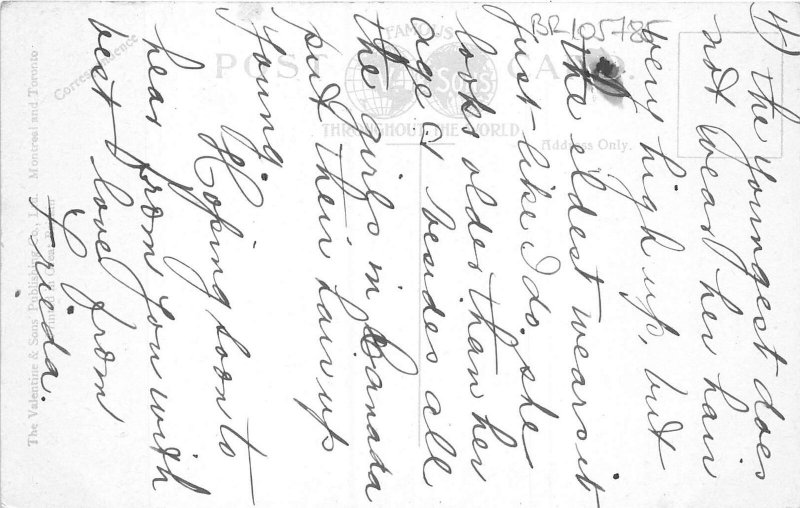 4) the youngest does
not wear her hair
very high up, but
the eldest wears it
just like I do, she
looks older than her
age is, besides all
the girls in Canada
put their hair up
young.
Hoping soon to
hear from you with
best love from
Frida.
BR105785
POST CARD.
FAMOUS
THROUGHOUT THE WORLD
Correspondence
Address Only.
The Valentine & Sons' Publishing Co., Ltd. Montreal and Toronto